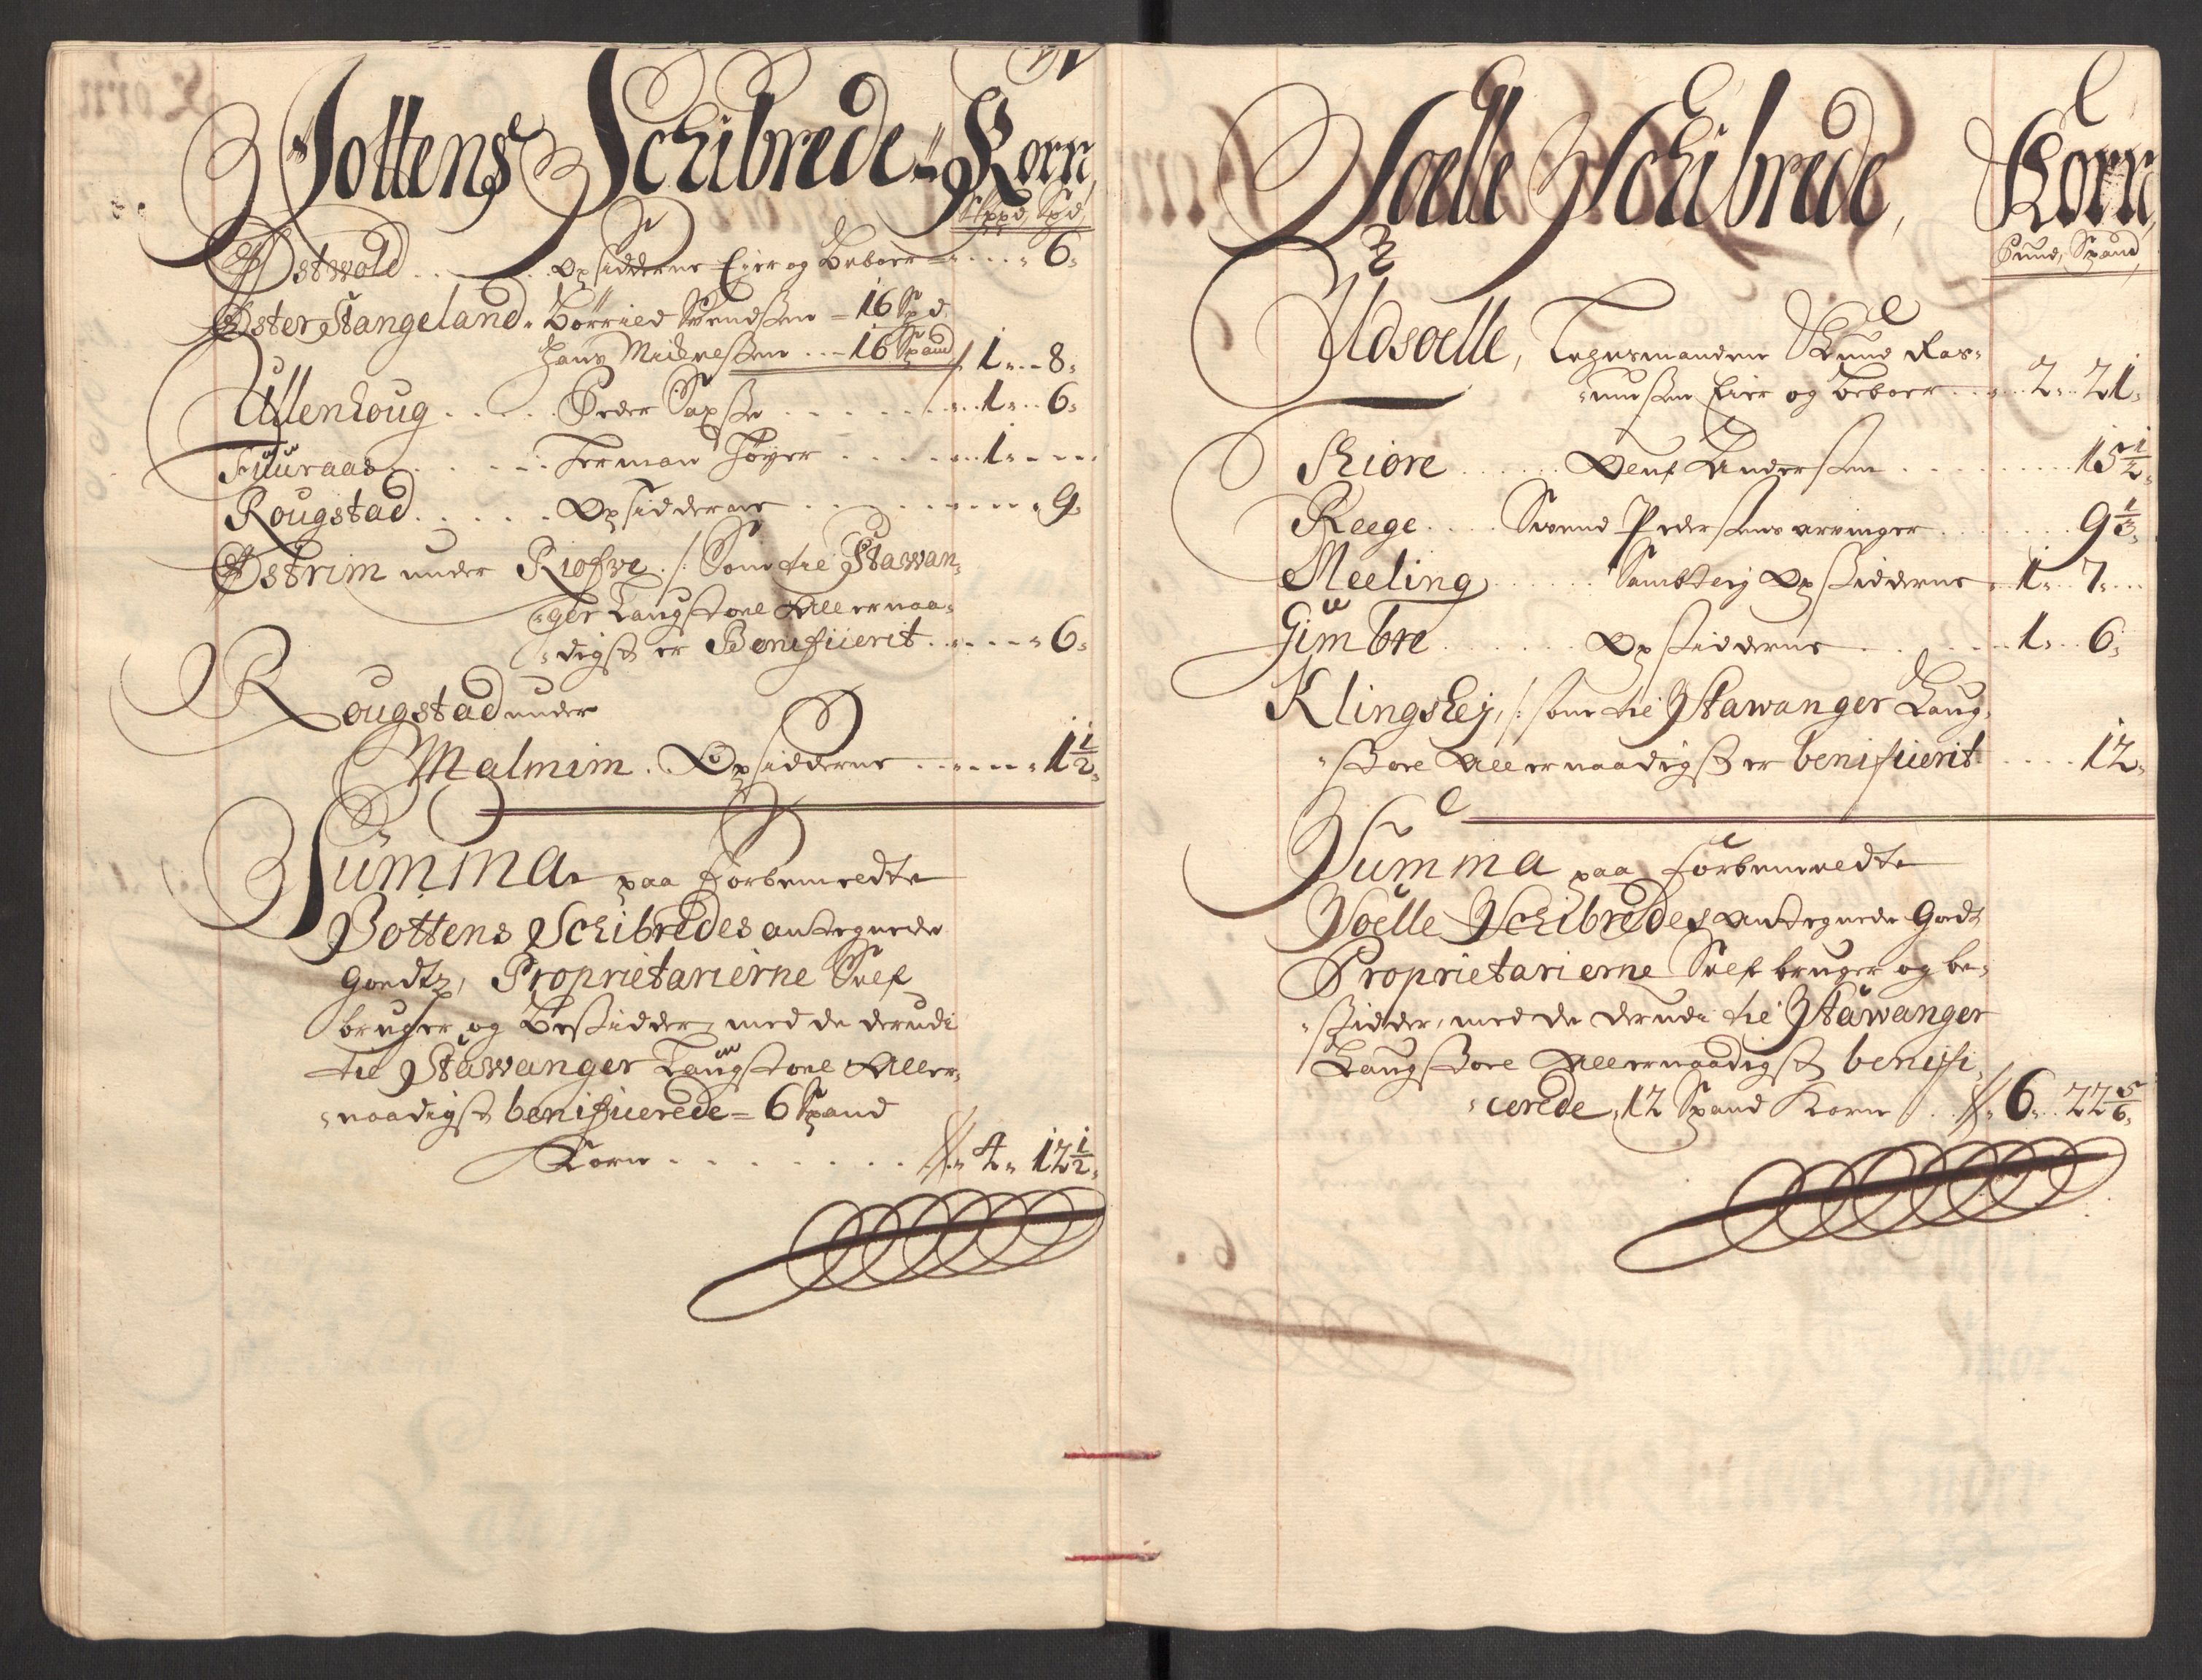 Jottens Schibrede Korn
Skppd, Spd,
Østwold . . . Opsidderne Eier og Beboer . . . 6
Øster Stangeland. Børrild Svendßen - 16 Spd
Hans Mickelßen . . - 16 Spand 1 . . 8
Ullenhoug . . . Peder Sax . . . 1 . . 6
Fuuraas . . . Herman Høyer . . . 1 . .
Rougstad . . . Opsidderne . . . 9
Østrim under Riofwe ./: Som til Stawan-
ger Laugstoel Allernaa-
digst er Benificierit . . . 6
Rougstad under
Malmim . Opsidderne . . . 1 1/2
Summa paa forbemeldte
Jottens Schibredes antegnede
Goedtz, Proprietarierne Self
bruger og Beßidder med de derudi
til Stawanger Laugstoel Aller-
naadigst benificierede = 6 Spand
Korn . . . 4 12 1/2
Soelle Schibrede, Korn
Pund, Spand
Udsoelle, Lensmanden Knud Ras-
mußen Eier og beboer . . 2 . . 21
Skiore . . . Oluf Anderßen . . . 15 1/2
Reege . . . Swend Pedersens arvinger . . . 9 1/3
Meeling . . . Samptlig Opsidderne . 1 . 7
Gimbre . . . Opsidderne . . . 1 . 6
Klingshej, /: som til Stawanger Laug-
stoel Allernaadigst er benificierit . . . 12
Summa paa forbemeldte
Soelle Schibredes antegnede Goedtz
Proprietarierne Self bruger og be-
sidder, med de derudi til Stawanger
Laugstoel Allernaadigst benifi-
cierede, 12 Spand Korn . . 6 . . 22 5/6